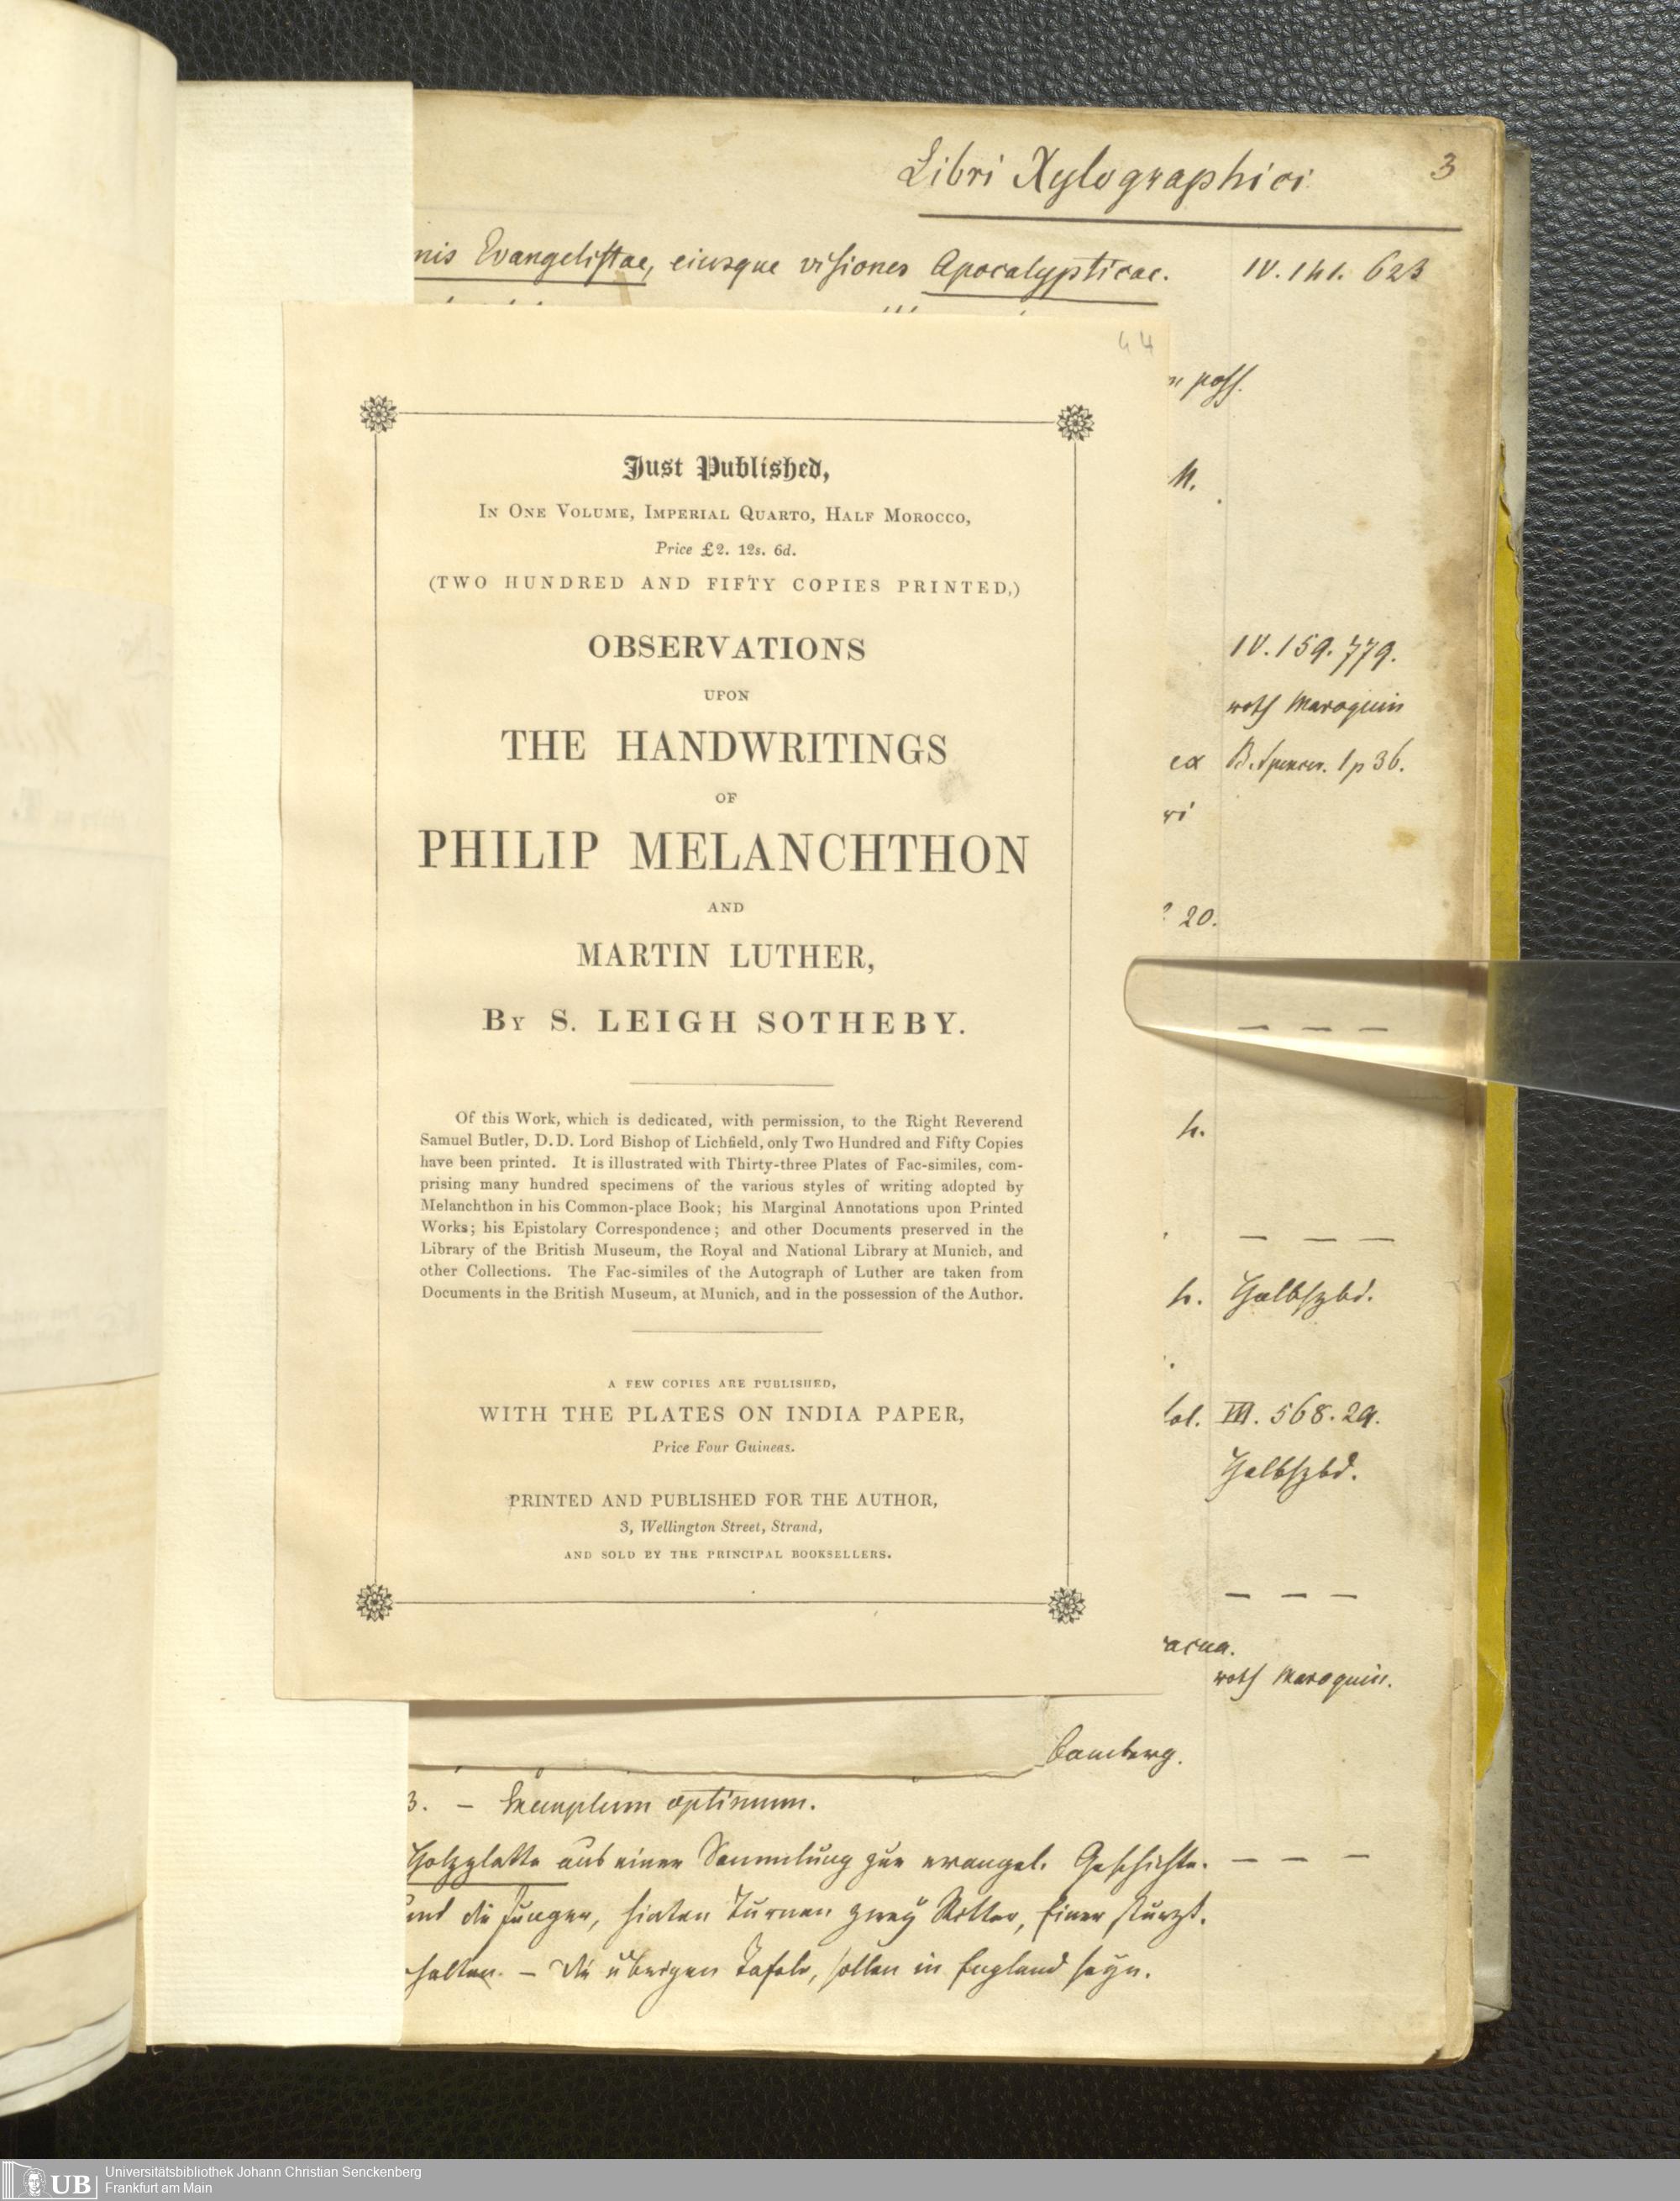 Libri Xylographici
3
nis Evangelistae, eiusque visiones Apocalypticae.
IV. 141. 623
44
poss.
Just Published,
In One Volume, Imperial Quarto, Half Morocco,
Price £2. 12s. 6d.
(TWO HUNDRED AND FIFTY COPIES PRINTED,)
OBSERVATIONS
UPON
THE HANDWRITINGS
OF
PHILIP MELANCHTHON
AND
MARTIN LUTHER,
By S. LEIGH SOTHEBY.
Of this Work, which is dedicated, with permission, to the Right Reverend
Samuel Butler, D.D. Lord Bishop of Lichfield, only Two Hundred and Fifty Copies
have been printed. It is illustrated with Thirty-three Plates of Fac-similes, com-
prising many hundred specimens of the various styles of writing adopted by
Melanchthon in his Common-place Book; his Marginal Annotations upon Printed
Works; his Epistolary Correspondence; and other Documents preserved in the
Library of the British Museum, the Royal and National Library at Munich, and
other Collections. The Fac-similes of the Autograph of Luther are taken from
Documents in the British Museum, at Munich, and in the possession of the Author.
A FEW COPIES ARE PUBLISHED,
WITH THE PLATES ON INDIA PAPER,
Price Four Guineas.
PRINTED AND PUBLISHED FOR THE AUTHOR,
3, Wellington Street, Strand,
AND SOLD BY THE PRINCIPAL BOOKSELLERS.
IV. 159. 779.
roth Maroquin
ex B. Spencer. 1 p 36.
20.
h.
h. Halbfzbd.
III. 568. 29.
Halbfzbd.
roth Maroquin.
Bamberg.
3. – Exemplum optimum.
Holzplatte aus einer Sammlung zur evangel. Geschichte. – – –
und die Jünger, hinten Turnen zwey Ritter, Einer stürzt.
halten. – Die übrigen Tafeln, sollen in England seyn.
UB
Universitätsbibliothek Johann Christian Senckenberg
Frankfurt am Main